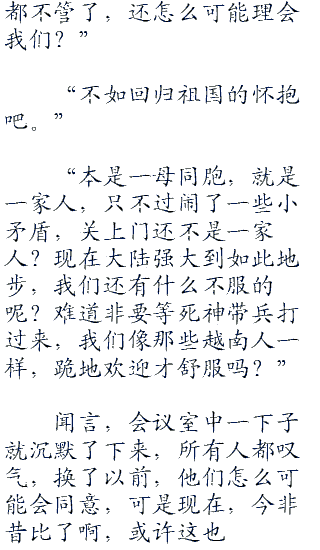 都不管了，还怎么可能理会
我们？”
“不如回归祖国的怀抱
吧。”
“本是一母同胞，就是
一家人，只不过闹了一些小
矛盾，关上门还不是一家
人？现在大陆强大到如此地
步，我们还有什么不服的
呢？难道非要等死神带兵打
过来，我们像那些越南人一
样，跪地欢迎才舒服吗？”
闻言，会议室中一下子
就沉默了下来，所有人都叹
气，换了以前，他们怎么可
能会同意，可是现在，今非
昔比了啊，或许这也